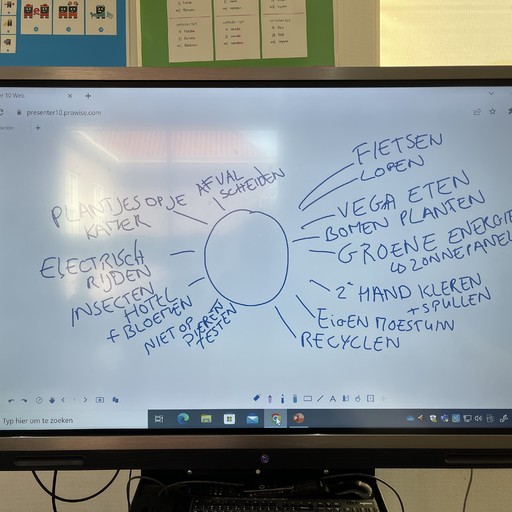 er 10 Web
presenter10.prowise.com
FIETSEN
LOPEN
AFVAL
SCHEIDEN
VEGA ETEN
PLANTJES OP JE
KATTER
BOMEN PLANTEN
GROENE ENERGIE
ZONNEPANEL
ELECTRISCH
RIJDEN
INSECTEN
HOTEL
+ BLOEMEN
2e HAND KLEREN
+ SPULLEN
NIET OP
DIEREN
TESTEN
EIGEN MOESTUIN
RECYCLEN
Typ hier om te zoeken